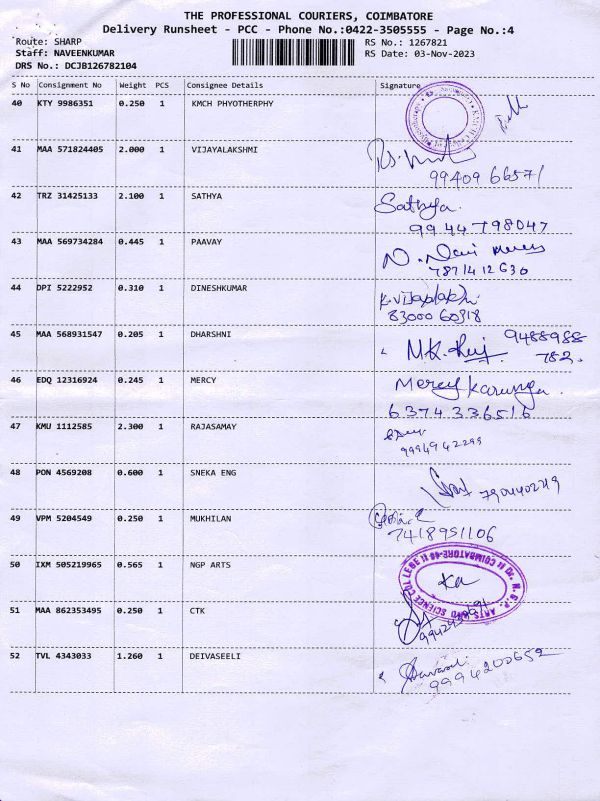 THE PROFESSIONAL COURIERS, COIMBATORE
Delivery Runsheet - PCC - Phone No.:0422-3505555 - Page No.:4
Route: SHARP RS No.: 1267821
Staff: NAVEENKUMAR RS Date: 03-Nov-2023
DRS No.: DCJB126782104
S No Consignment No Weight PCS Consignee Details Signature
40 KTY 9986351 0.250 1 KMCH PHYOTHERPHY
41 MAA 571824405 2.000 1 VIJAYALAKSHMI
99409 66571
42 TRZ 31425133 2.100 1 SATHYA Sathya.
99 44 798047
43 MAA 569734284 0.445 1 PAAVAY
7871412630
44 DPI 5222952 0.310 1 DINESHKUMAR
83000 60318
45 MAA 568931547 0.205 1 DHARSHNI 9488988
782.
46 EDQ 12316924 0.245 1 MERCY Mercy Karunya.
6374336516
47 KMU 1112585 2.300 1 RAJASAMAY
9994942299
48 PON 4569208 0.600 1 SNEKA ENG
49 VPM 5204549 0.250 1 MUKHILAN
7418951106
50 IXM 505219965 0.565 1 NGP ARTS Ka
DR. N.G.P. ARTS AND SCIENCE COLLEGE COIMBATORE-48
51 MAA 862353495 0.250 1 CTK
52 TVL 4343033 1.260 1 DEIVASEELI
9994200652